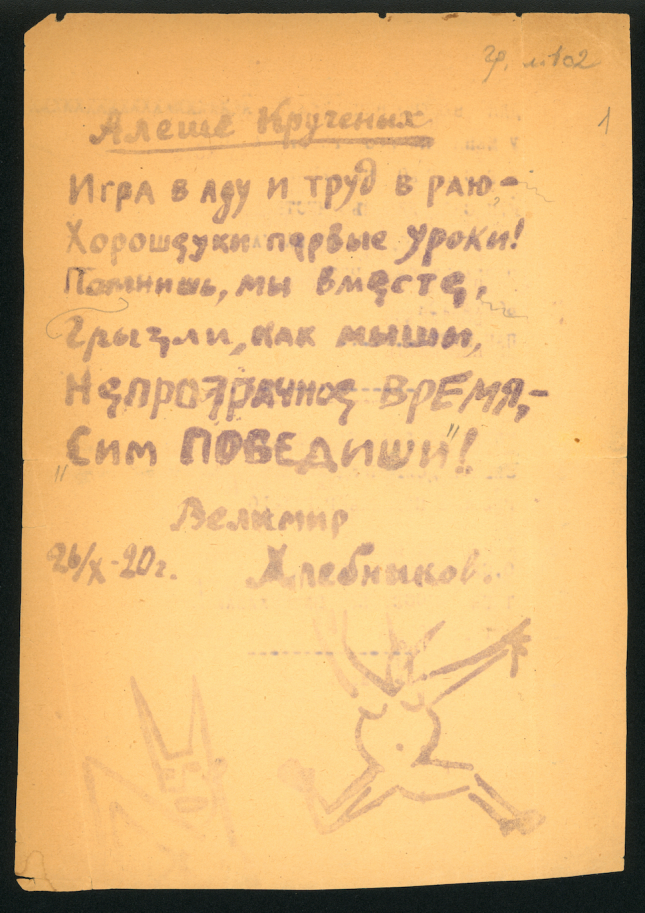 1
Алеше Крученых
Игра в аду и труд в раю,–
Хорошеуки первые уроки!
Помнишь, мы вместе,
Грызли, как мыши,
Непрозрачное время,–
„Сим победиши"!
Велимир
26/X-20г. Хлебников.